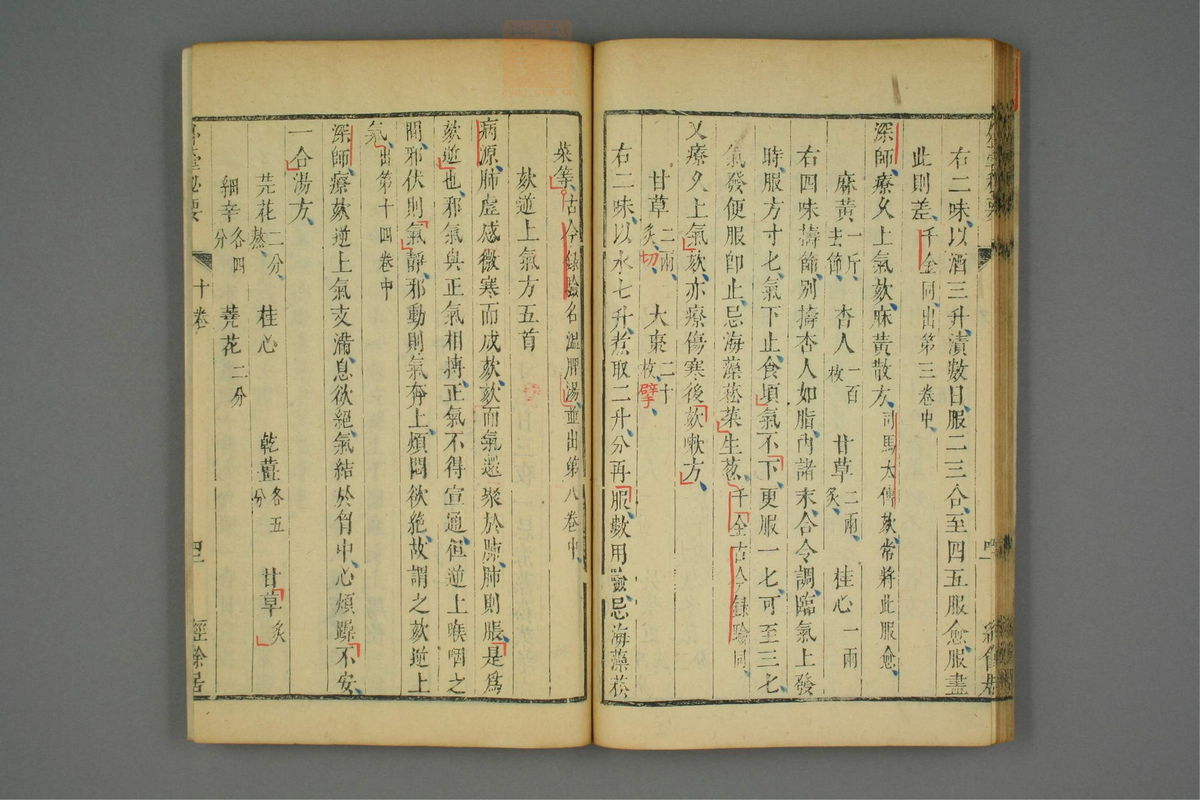 右二味以酒三升漬數日服二三合至四五服愈服盡
此則差千金同出第三卷中
深師療久上氣欬麻黃散方司馬太傅欬常將此服愈
麻黃一斤去節 杏人一百枚 甘草二兩炙 桂心一兩
右四味擣篩別擣杏人如脂內諸末合令調臨氣上發
時服方寸七氣下止食頃氣不下更服一七可至三七
氣發便服即止忌海藻菘菜生葱千金古今錄驗同
又療久上氣欬亦療傷寒後欬嗽方
甘草二兩炙切 大棗二十枚擘
右二味以水七升煮取二升分再服數用驗忌海藻菘
菜等古今錄驗名溫脾湯並出第八卷中
欬逆上氣方五首
病源肺虛感微寒而成欬欬而氣還聚於肺肺則脹是爲
欬逆也邪氣與正氣相搏正氣不得宣通但逆上喉咽之
間邪伏則氣靜邪動則氣奔上煩悶欲絕故謂之欬逆上
氣出第十四卷中
深師療欬逆上氣支滿息欲絕氣結於胷中心煩躁不安
一合湯方
芫花二分熬 桂心 乾薑各五分 甘草炙
細辛各四分 蕘花二分
十卷 四二 經餘居